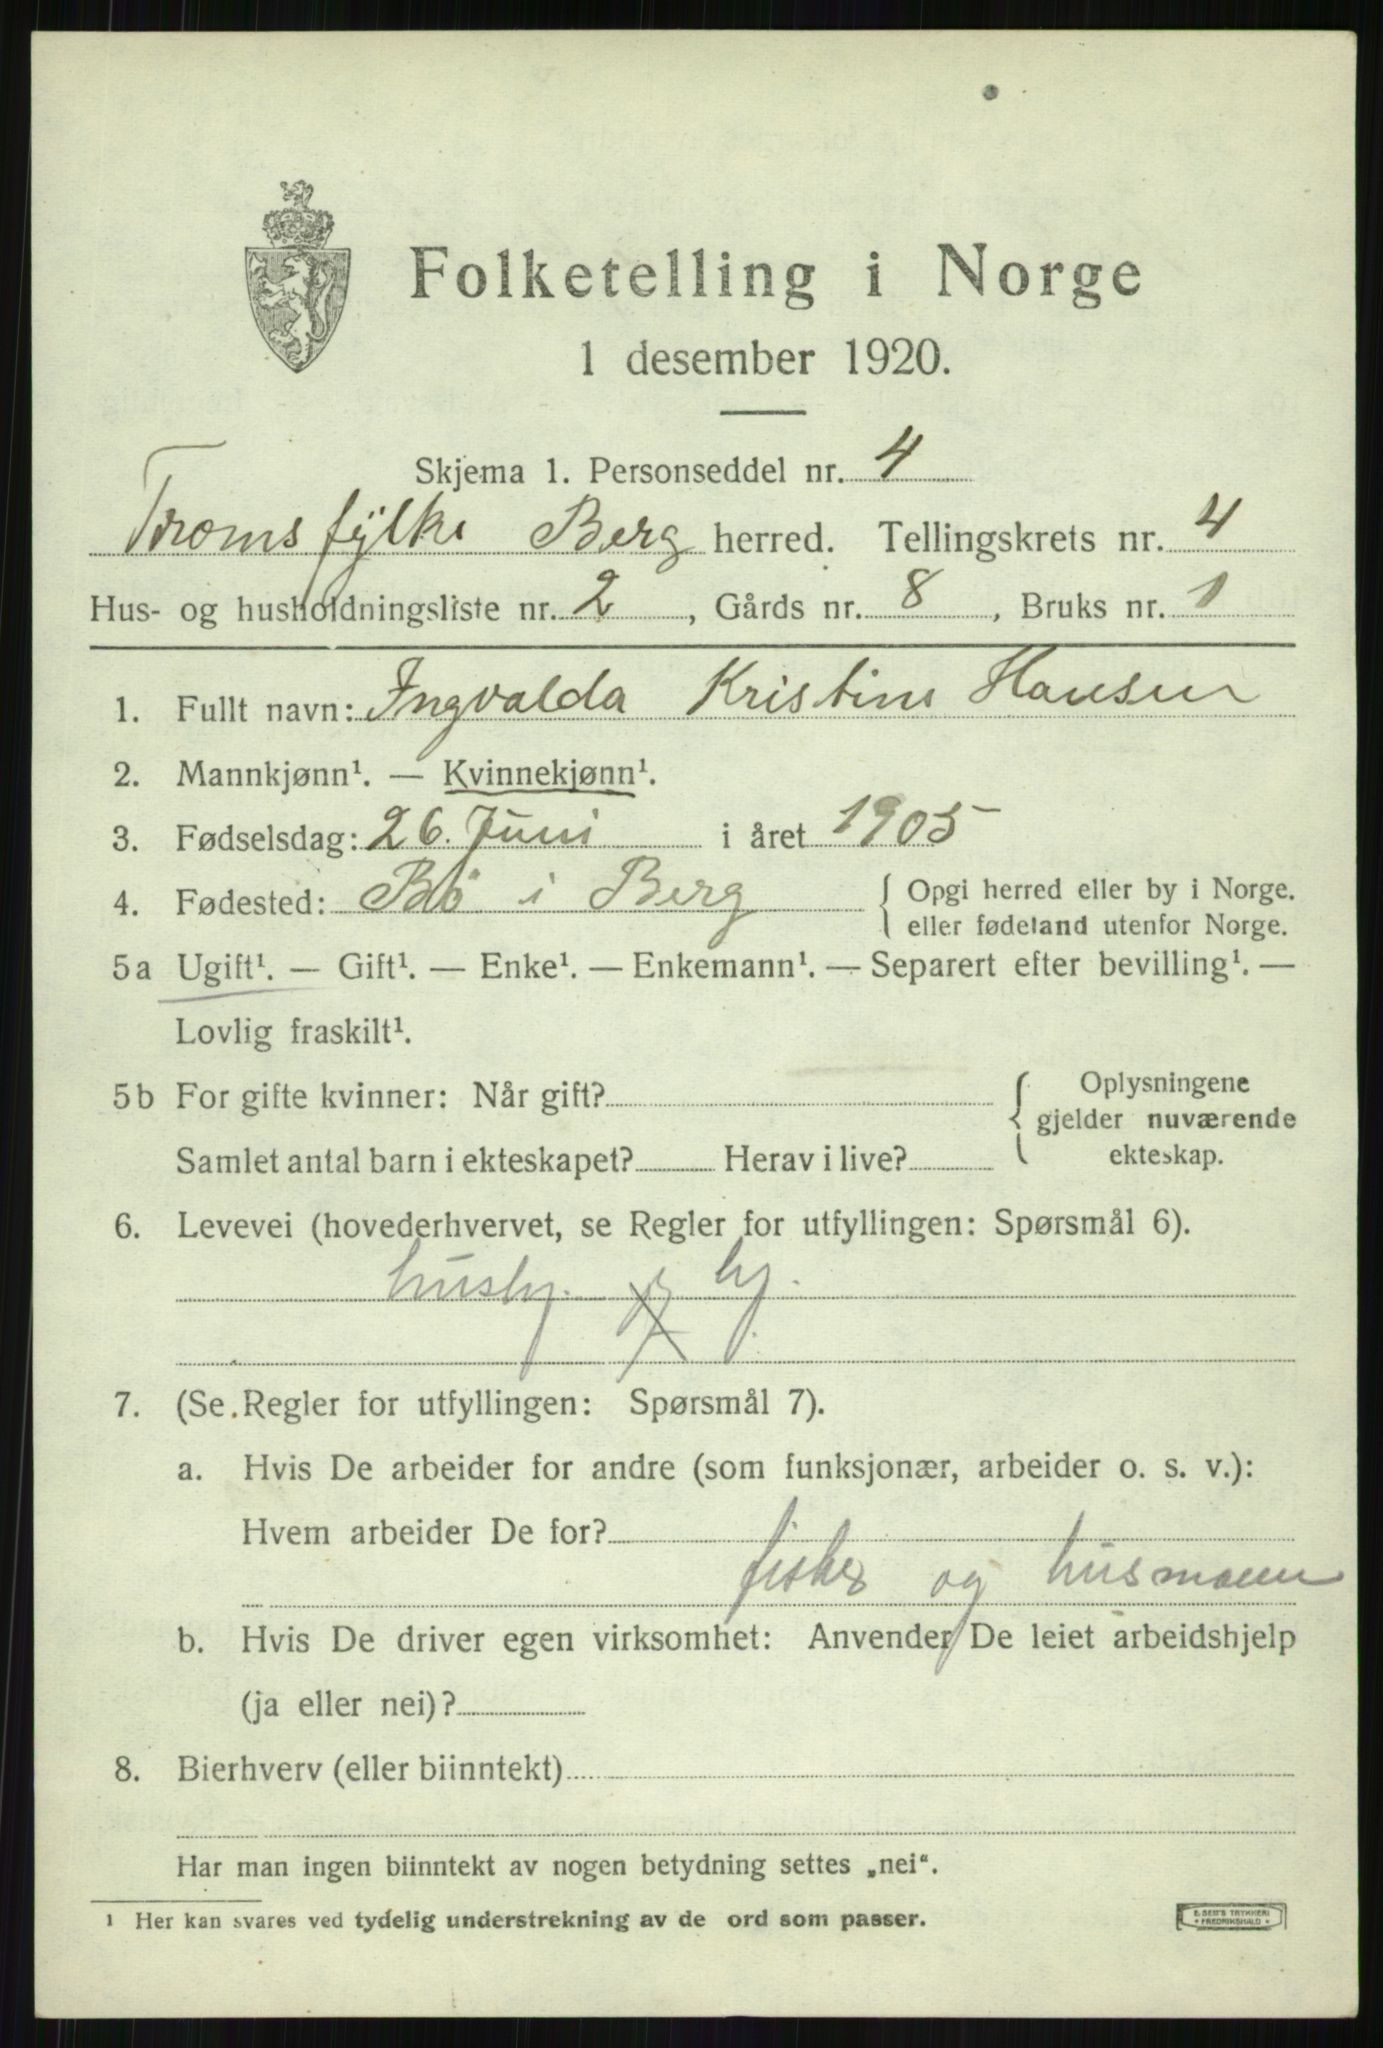 Folketelling i Norge
1 desember 1920.
Skjema 1. Personseddel nr. 4
Troms fylke Berg herred. Tellingskrets nr. 4
Hus- og husholdningsliste nr. 2, Gårds nr. 8, Bruks nr. 1
1. Fullt navn: Ingvalda Kristine Hansen
2. Mannkjønn¹. — Kvinnekjønn¹.
3. Fødselsdag: 26. Juni i året 1905
4. Fødested: Bö i Berg { Opgi herred eller by i Norge.
eller fødeland utenfor Norge.
5a Ugift¹. — Gift¹. — Enke¹. — Enkemann¹. — Separert efter bevilling¹. —
Lovlig fraskilt¹.
5b For gifte kvinner: Når gift? { Oplysningene
gjelder nuværende
Samlet antal barn i ekteskapet? Herav i live? ekteskap.
6. Levevei (hovederhvervet, se Regler for utfyllingen: Spørsmål 6).
hj.
7. (Se Regler for utfyllingen: Spørsmål 7).
a. Hvis De arbeider for andre (som funksjonær, arbeider o. s. v.):
Hvem arbeider De for?
fisker og husmann
b. Hvis De driver egen virksomhet: Anvender De leiet arbeidshjelp
(ja eller nei)?
8. Bierhverv (eller biinntekt)
Har man ingen biinntekt av nogen betydning settes „nei“.
¹ Her kan svares ved tydelig understrekning av de ord som passer.
E. SEM'S TRYKKERI
FREDRIKSHALD